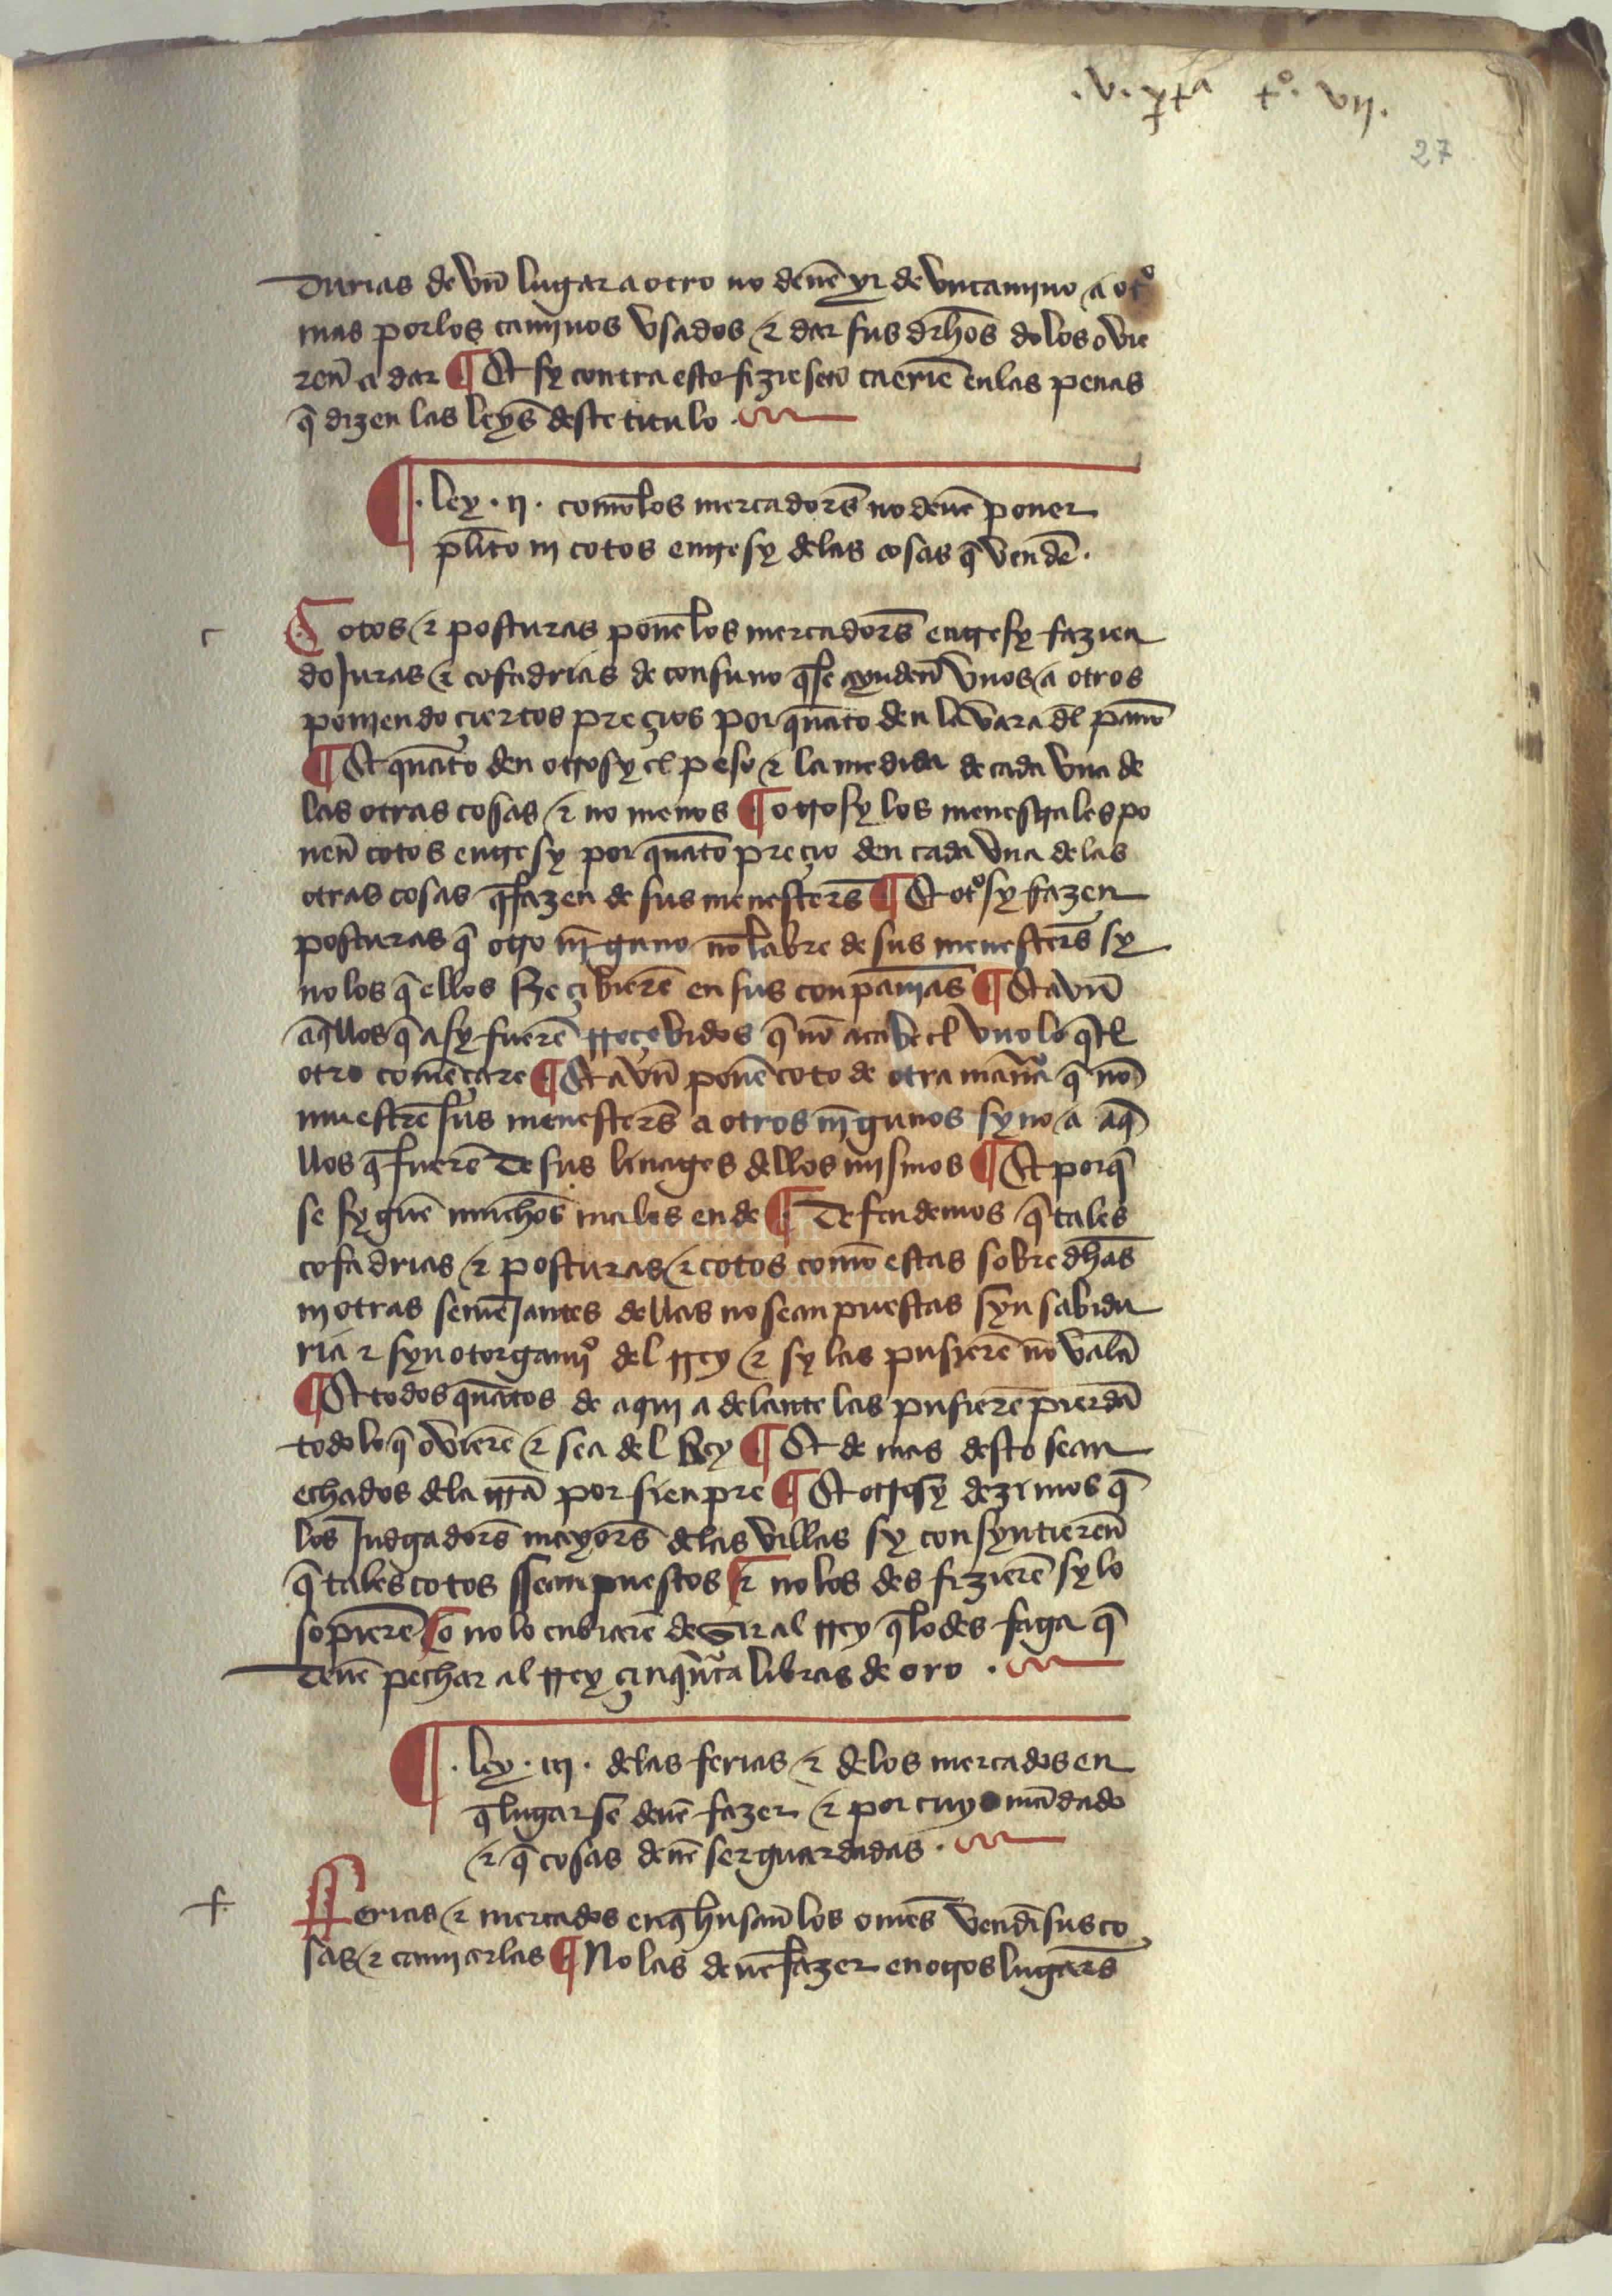 .v. p̱ta tº. vij.
27
durias de vn̄ lugar a otro no deuē yr de vn camino a otº
mas por los caminos vsados & dar sus drh̄os do los ovie
ren̄ a dar ¶ Et sy contra esto fiziesen̄ caeriē en las penas
q̄ dizen las leyes̄ deste titulo .
¶ . ley . ij . comōlos mercadores̄ no deuē poner
pl̄ito nj cotos entre sy delas cosas q̄ vendē .
c
Cotos & posturas ponēlos mercadores̄ entre sy fazien
do Juras & cofadrias de consuno q̄ se ayuden̄ vnos a otros
ponjendo çiertos preçios por quāto den la vara dl̄ pan̄o
¶ Et quāto den otrosy el peso & la medida de cada vna de
las otras cosas & no menos ¶ otrosy los menestrales po
nen̄ cotos entre sy por quāto preçio den cada vna de las
otras cosas q̄ fazen de sus menesters̄ ¶ Et otºsy fazen
posturas q̄ otro nj̄guno nō labre de sus menesters̄ sy
no los q̄ ellos Reçibierē en sus conpanjas̄ ¶ Et avn̄
aq̄llos q̄ asy fuerē rreçebidos q̄ nō acabe el vno lo q̄ el
otro comēçare ¶ Et avn̄ ponē coto de otra manēa q̄ nō
muestrē sus menesters̄ a otros nj̄gunos sy no a aq̄
llos q̄ fuerē de sus linages dellos mjsmos ¶ Et porq̄
se syguē muchos̄ males ende ¶ Defendemos q̄ tales
cofadrias & posturas & cotos comō estas sobre dh̄as
nj otras semeJantes dellas no sean puestas syn sabidu
ria & syn otorgamjº del rrey & sy las pusierē nō valā
¶ Et todos quātos de aquj adelante las pusierē pierdā
todo lo q̄ ovierē & sea del Rey ¶ Et de mas desto sean
echados dela trr̄a por sienpre ¶ Et otrosy dezimos q̄
los Judgadores̄ mayores̄ delas villas sy consyntieren̄
q̄ tales cotos ssean puestos & no los des fizierē sy lo
sopierē o no lo enbiarē desir al rrey q̄ lo des faga q̄
deuē pechar al rrey çinquēta libras de oro .
¶ . ley . iij . delas ferias & de los mercados en
q̄ lugar se deuē fazer & por cuyo mādado
& q̄ cosas deuē ser guardadas .
f
Ferias & mercados en q̄ husan̄ los omes̄ vendē sus co
sas & camjarlas ¶ No las deuē fazer en otros lugares̄